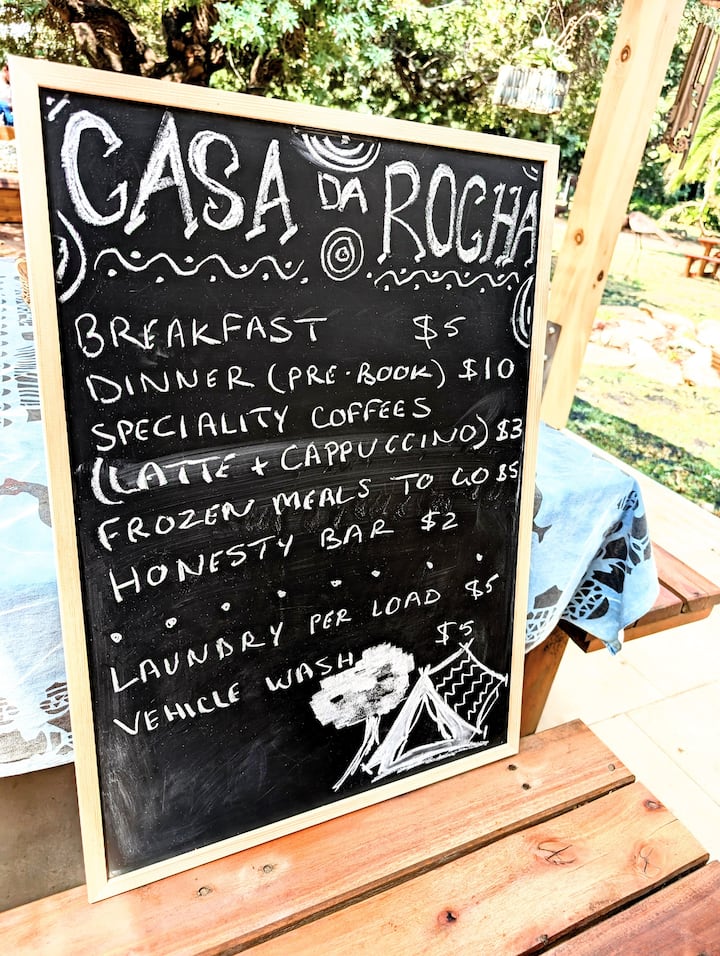 CASA DA ROCHA
BREAKFAST $5
DINNER (PRE-BOOK) $10
SPECIALITY COFFEES
(LATTE + CAPPUCCINO) $3
FROZEN MEALS TO GO $5
HONESTY BAR $2
LAUNDRY PER LOAD $5
VEHICLE WASH $5